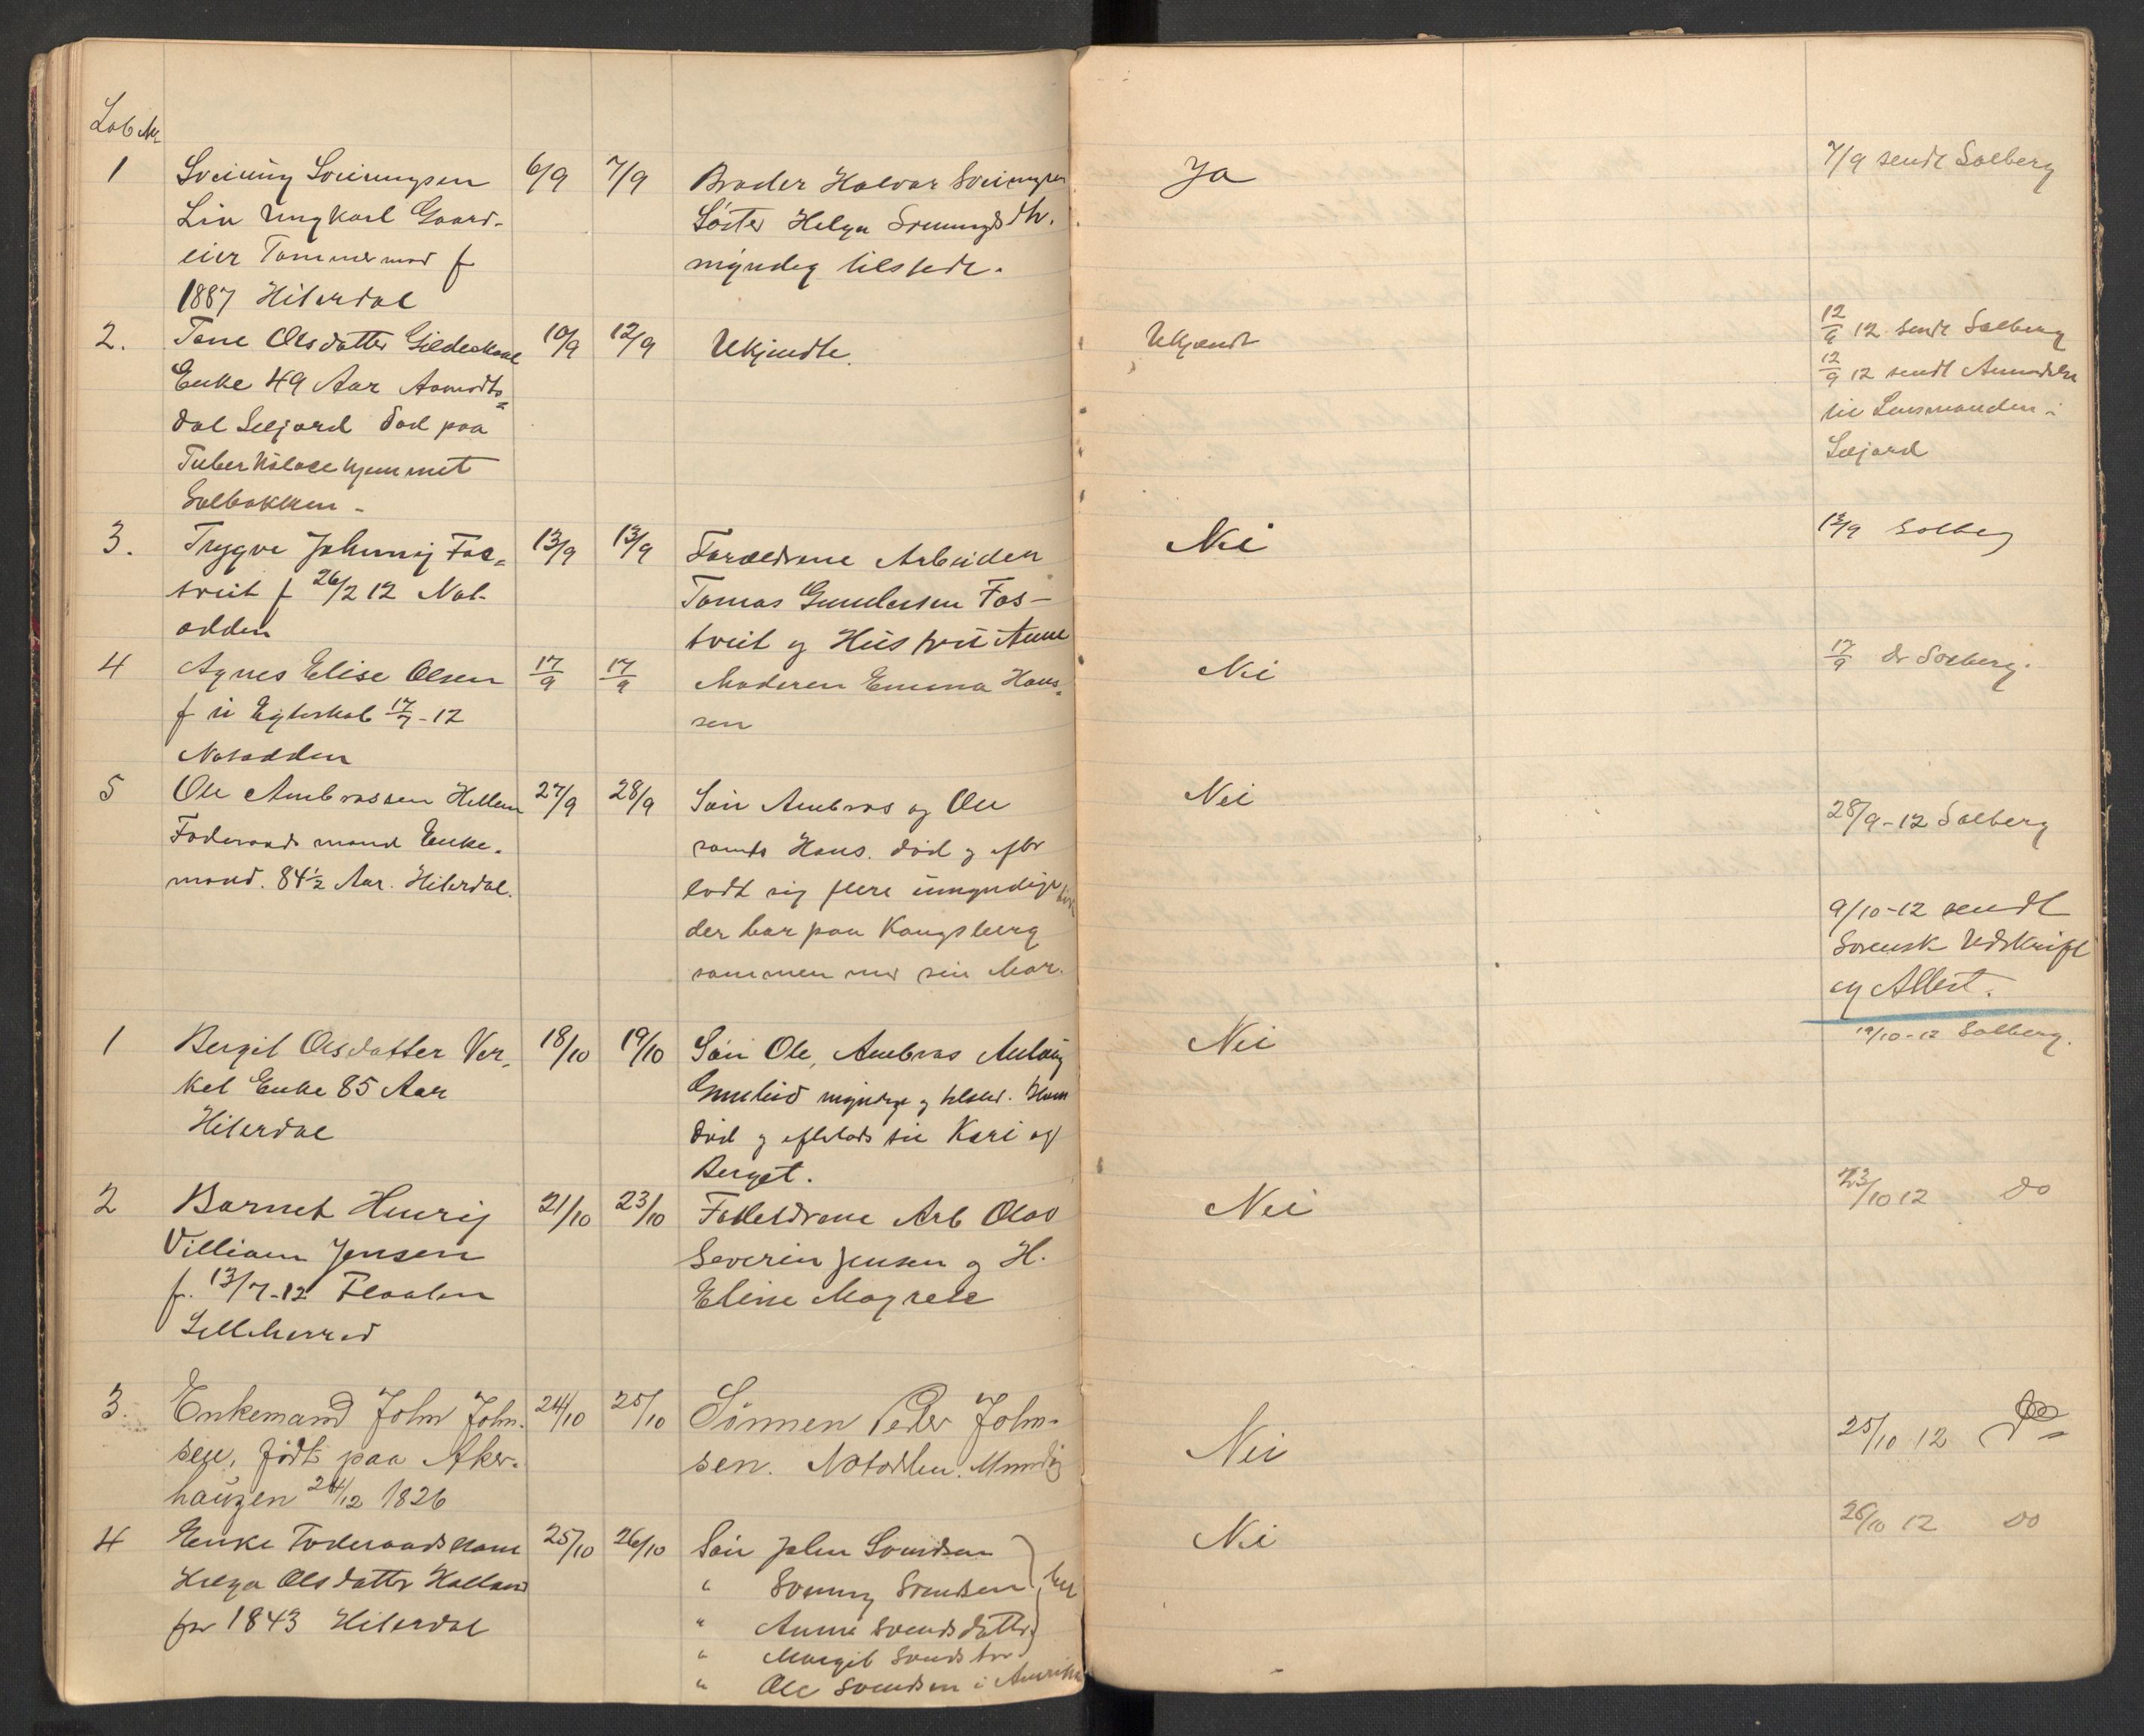 Lob Nr
1 Sveinung Sveinungsen 6/9 7/9 Broder Halvor Sveinungsen Ja 7/9 sendt Solberg
Lia Ungkarl Gaard-
Søster Helga Sveinungsdtr.
eier Tømmermand f
myndig tilstede.
1887 Hiterdal
2. Tone Olsdatter Gildeskaal 10/9 12/9 Ukjendte. Ukjendt 12/9 12 sendt Solberg
Enke 49 Aar Aamodts= 12/9 12 sendt Anmeldelse
dal Seljord død paa til Lensmanden i
Tuberkulosehjemmet Seljord
Solbakken -
3. Trygve Johnny Fos= 13/9 13/9 Forældrene Arbeider Nei 13/9 Solberg
tveit f 26/2 12 Not- Tomas Gundersen Fos-
odden tveit og Hustru Anne
4 Agnes Elise Olsen 17/9 17/9 Moderen Emma Hans= Nei 17/9 dr Solberg.
f u Egteskab 17/7-12 sen
Notodden
5 Ole Ambrossen Hellem 27/9 28/9 Søn Ambros og Ole Nei 28/9-12 Solberg
Føderaads mand Enke- samts Hans. død og efter
mand. 84½ Aar. Hiterdal. lodt sig flere umyndige
der bor paa Kongsberg
sammen med sin Mor.
9/10-12 sendt
Sorensk Udskrift
og Attest.
1 Bergit Olsdatter Ver- 18/10 19/10 Søn Ole, Ambros Nei 19/10-12 Solberg.
kel Enke 85 Aar myndige og tilsted.
Hiterdal død og efterlods sie Kari og
Berget.
2 Barnet Henrij 21/10 23/10 Forældrene Arb Olav Nei 23/10 12 do
Villiam Jensen Severin Jensen og H.
f. 13/7-12 Flaaten Eline Magrete
Lilleherred
3. Enkemand John John- 24/10 25/10 Sönnen Peder John- Nei 25/10 12 Do
sen, født paa Aker- sen. Notodden. Myndig
haugen 24/12 1826
4 Enke Føderaadskone 25/10 26/10 Søn John Svendsen Nei 26/10 12 do
Helga Olsdatter Halland " Sveinung Svendsen her
før 1843 Hiterdal " Anne Svendsdatter
" Margit Svendsdtr
" Ole Svendsen i Amerika